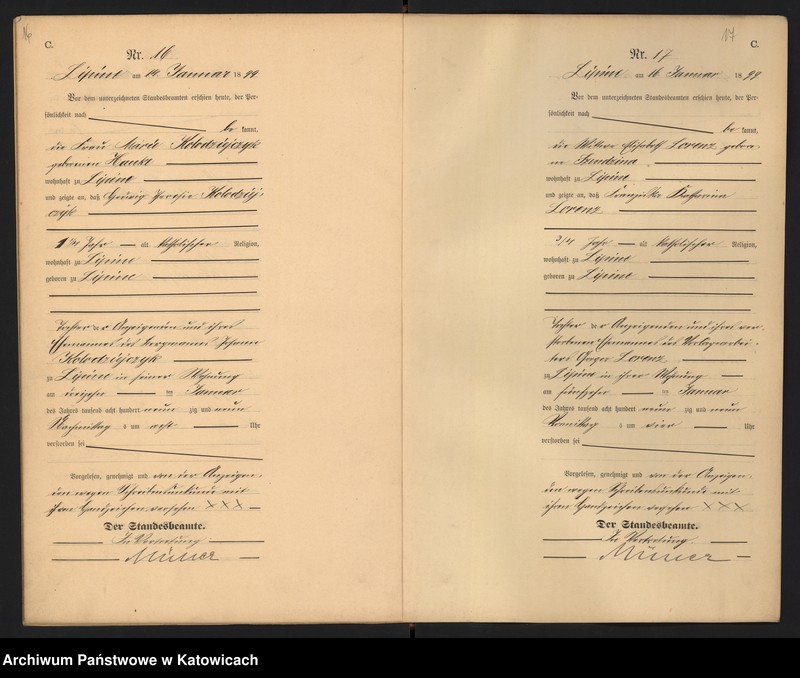 16
C.
Nr. 16
Lipine am 14. Januar 1899
Vor dem unterzeichneten Standesbeamten erschien heute, der Per-
sönlichkeit nach
be kannt,
die Frau Marie Kolodziejczyk
geborenen Hauka
wohnhaft zu Lipine
und zeigte an, daß Hedwig Kolodziej-
czyk
1 3/4 Jahr alt katholischer Religion,
wohnhaft zu Lipine
geboren zu Lipine
Tochter der Anzeigenden und ihres
Ehemannes des Bergmannes Johann
Kolodziejczyk
zu Lipine in seiner Wohnung
am dreizehn ten Januar
des Jahres tausend acht hundert neun zig und neun
Nachmittag s um acht Uhr
verstorben sei
Vorgelesen, genehmigt und von der Anzeigen-
den wegen Schreibunkunde mit
ihren Handzeichen versehen XXX
Der Standesbeamte.
In Vertretung
17
C.
Nr. 17
Lipine am 16 Januar 1899
Vor dem unterzeichneten Standesbeamten erschien heute, der Per-
sönlichkeit nach
be kannt,
die Wittwe Elisabeth Lorenz gebore-
ne
wohnhaft zu Lipine
und zeigte an, daß Franziska Katharina
Lorenz
3/4 Jahr alt katholischer Religion,
wohnhaft zu Lipine
geboren zu Lipine
Tochter der Anzeigenden und ihres ver-
storbenen Ehemannes des
Lorenz
zu Lipine in ihrer Wohnung
am fünfzehn ten Januar
des Jahres tausend acht hundert neun zig und neun
Vormittag s um vier Uhr
verstorben sei
Vorgelesen, genehmigt und von der Anzeigen-
den wegen Schreibunkunde mit
ihren Handzeichen versehen XXX
Der Standesbeamte.
In Vertretung.
Archiwum Państwowe w Katowicach